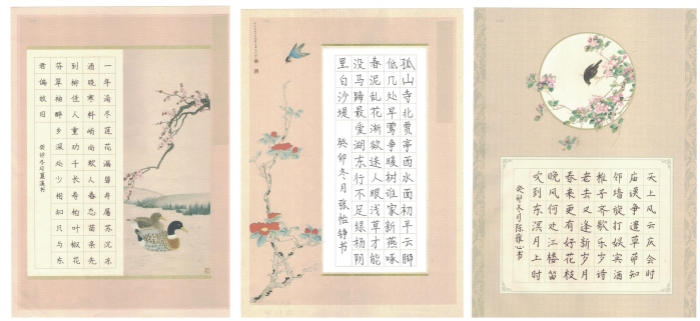 一年滴尽莲花漏碧井屠苏沉冻
酒晓寒料峭尚欺人春态苗条先
到柳佳人重劝千长寿柏叶椒花
芬翠袖醉乡深处少相知只与东
君偏故旧 癸卯冬月夏溪书
孤山寺北贾亭西水面初平云脚
低几处早莺争暖树谁家新燕啄
春泥乱花渐欲迷人眼浅草才能
没马蹄最爱湖东行不足绿杨阴
里白沙堤 癸卯冬月 张怡铮书
天上风云庆会时
庙谟争遣草茅知
邻墙旋打娱宾酒
稚子齐歌乐岁诗
老去又逢新岁月
春来更有好花枝
晚风何处江楼笛
吹到东溟月上时
癸卯冬月陈雅心书